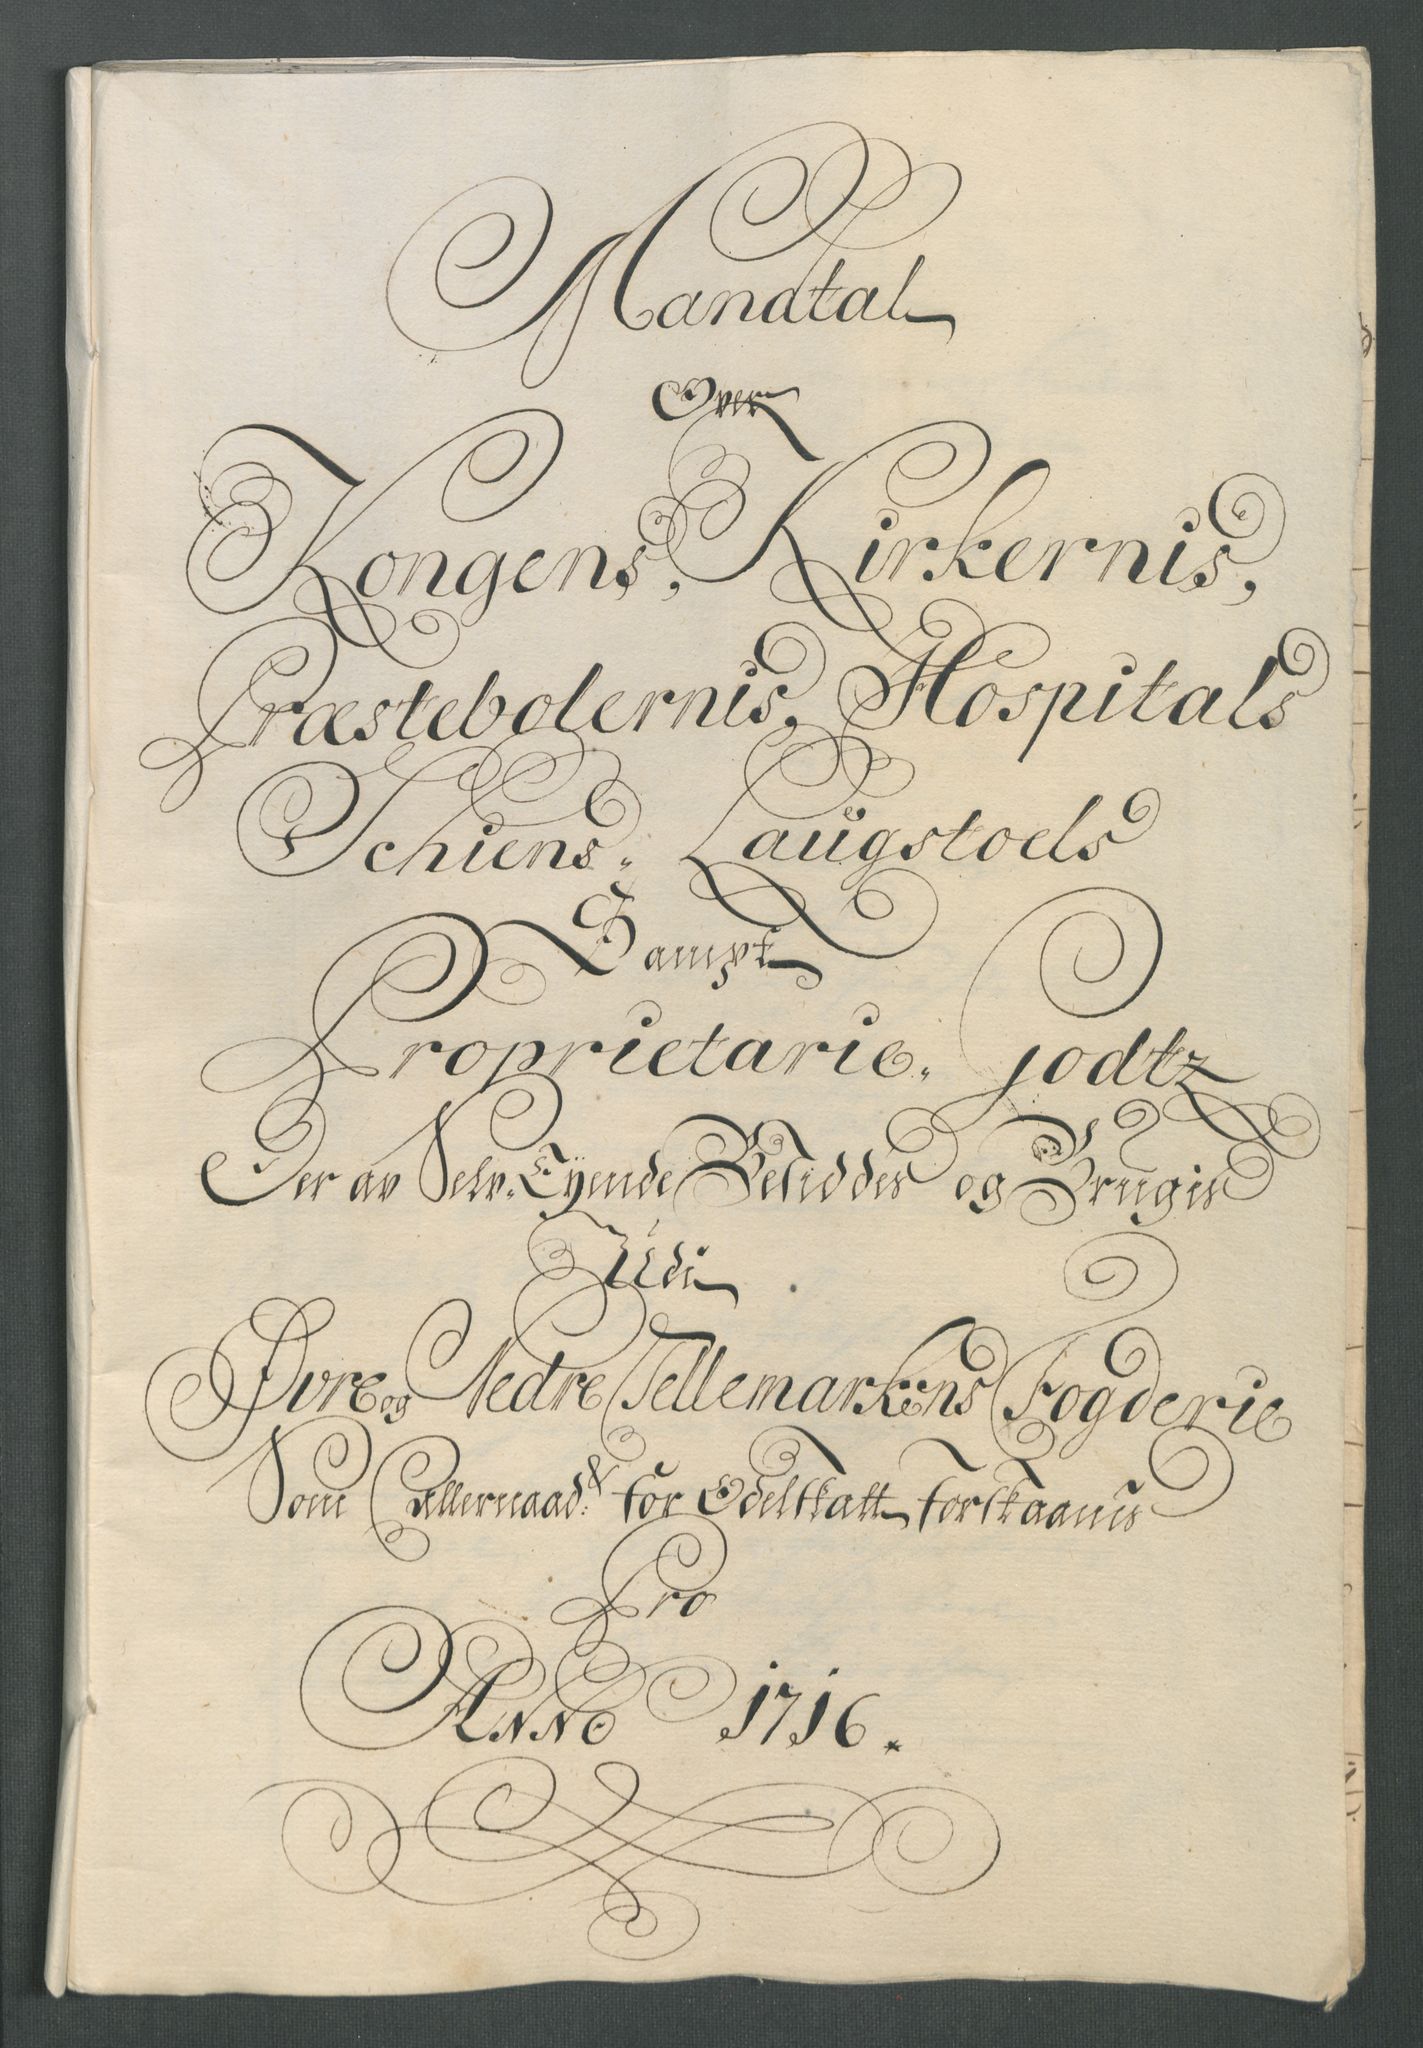 Mandtal
Over
Kongens, Kirkernis,
Præstebolernis, Hospitals
Schiens, Laugstoels
Sampt
Proprietarie, Godtz
Der av Selv-Eyende Besiddes og Brugis
Udi
Øvre og Nedre Tellemarkens Fogderie
Som Allernaad: for Odelskatt forskaanis
Pro
Anno 1716.